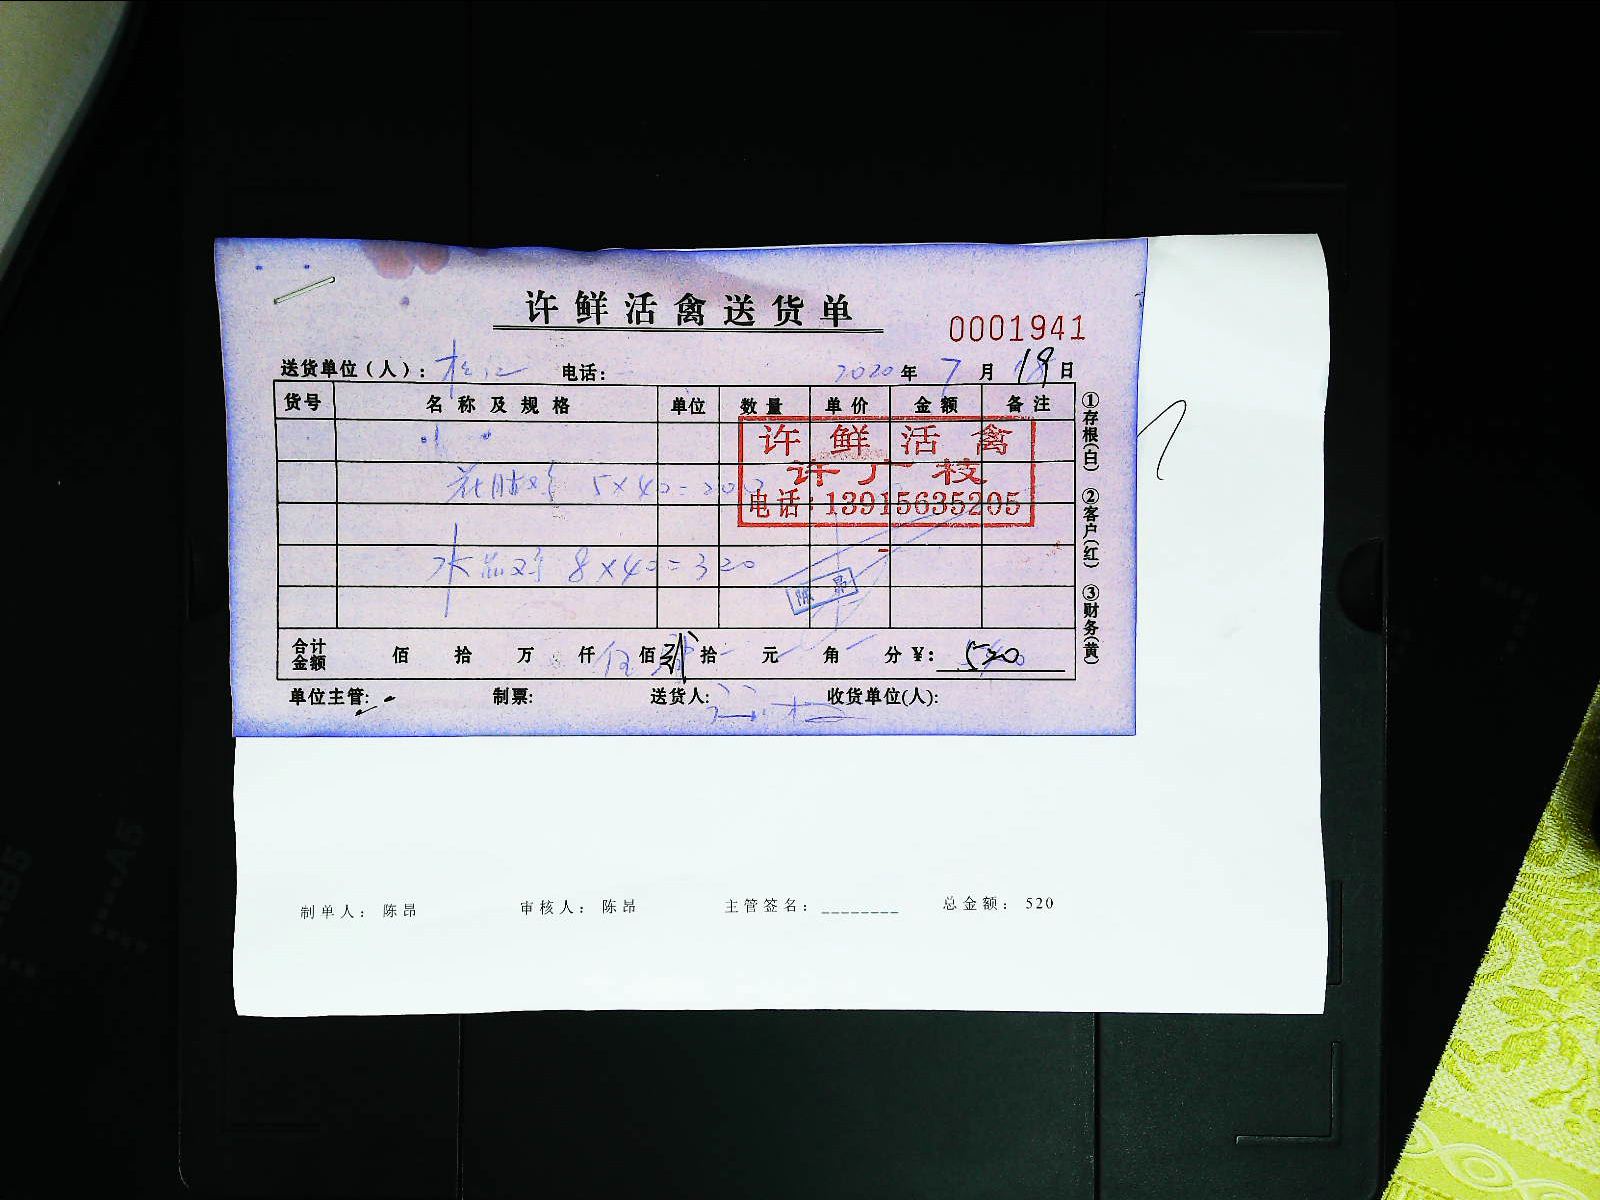 许鲜活禽送货单
0001941
送货单位(人): 电话: 2020年7月19日
货号 名称及规格 单位 数量 单价 金额 备注
许鲜活禽
许广枝
电话:13915635205
5×40=200
水 8×40=320
陈昂
合计金额 佰 拾 万 仟 伍佰贰拾 元 角 分 ¥: 520
单位主管: 制票: 送货人: 收货单位(人):
①存根(白) ②客户(红) ③财务(黄)
制单人: 陈昂 审核人: 陈昂 主管签名: ________ 总金额: 520